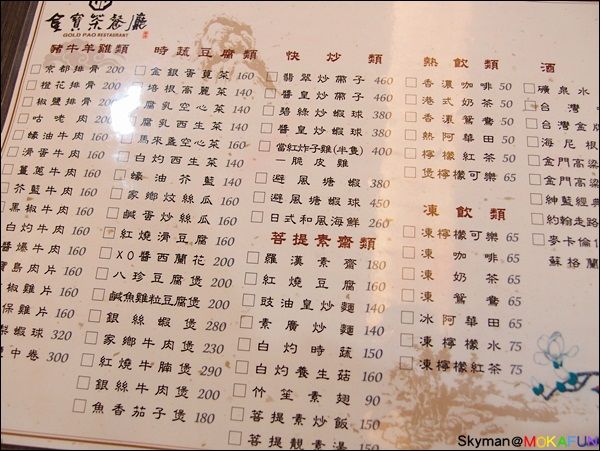 金寶茶餐廳
GOLD PAO RESTAURANT
豬牛羊雞類
京都排骨 200
橙花排骨 200
椒鹽排骨 200
咕咾肉 200
蠔油牛肉 160
滑蛋牛肉 160
薑蔥牛肉 160
芥藍牛肉 160
黑椒牛肉 160
白灼牛肉 160
醬爆牛肉 160
寶島肉片 160
椒雞片 160
保雞片 160
蝦球 320
中卷 300
時蔬豆腐類
金銀蛋莧菜 160
培根高麗菜 140
腐乳空心菜 140
腐乳西生菜 140
馬來盞空心菜 160
白灼西生菜 140
蠔油芥藍 140
家鄉炆絲瓜 160
鹹蛋炒絲瓜 160
紅燒滑豆腐 160
XO醬西蘭花 200
八珍豆腐煲 200
鹹魚雞粒豆腐煲 200
銀絲蝦煲 280
家鄉牛肉煲 230
紅燒牛腩煲 290
銀絲牛肉煲 200
魚香茄子煲 180
快炒類
翡翠炒帶子 460
醬皇炒帶子 460
碧綠炒蝦球 380
醬皇炒蝦球 380
當紅炸子雞(半隻) 400
一脆皮雞
避風塘蝦球 380
避風塘蝦 450
日式和風海鮮 260
菩提素齋類
羅漢素齋 180
紅燒豆腐 160
豉油皇炒麵 140
素廣炒麵 140
白灼時蔬 150
白灼養生菇 160
竹笙素翅 90
菩提素炒飯 150
菩提靚素湯 150
熱飲類
香濃咖啡 50
港式奶茶 50
香濃鴛鴦 50
熱阿華田 50
檸檬紅茶 50
煲檸檬可樂 65
凍飲類
凍檸檬可樂 65
凍咖啡 65
凍奶茶 65
凍鴛鴦 65
冰阿華田 65
凍檸檬水 75
凍檸檬紅茶 75
酒
礦泉水
台灣
台灣金牌
海尼根
金門高粱
金門高粱
紳藍經典
約翰走路
麥卡倫1
蘇格蘭
Skyman@MOKAFUN